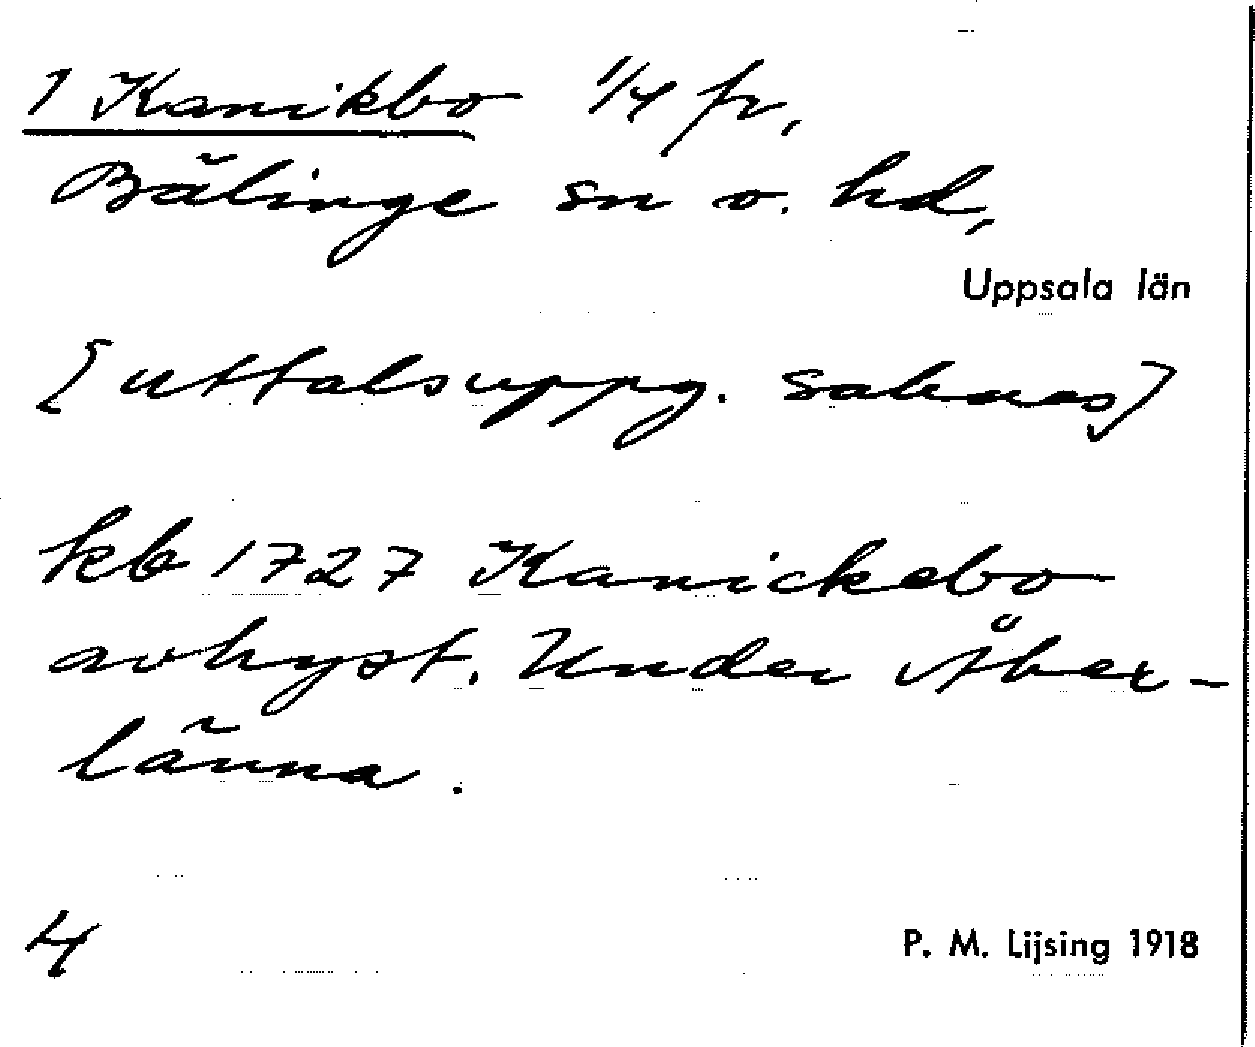 1 Kanikbo 1/4 fr,
Bälinge sn o. hd,
Uppsala län
[uttalsuppg. saknas]
kb 1727 Kanickebo
avhyst. Under Åber-
länna.
4
P. M. Lijsing 1918